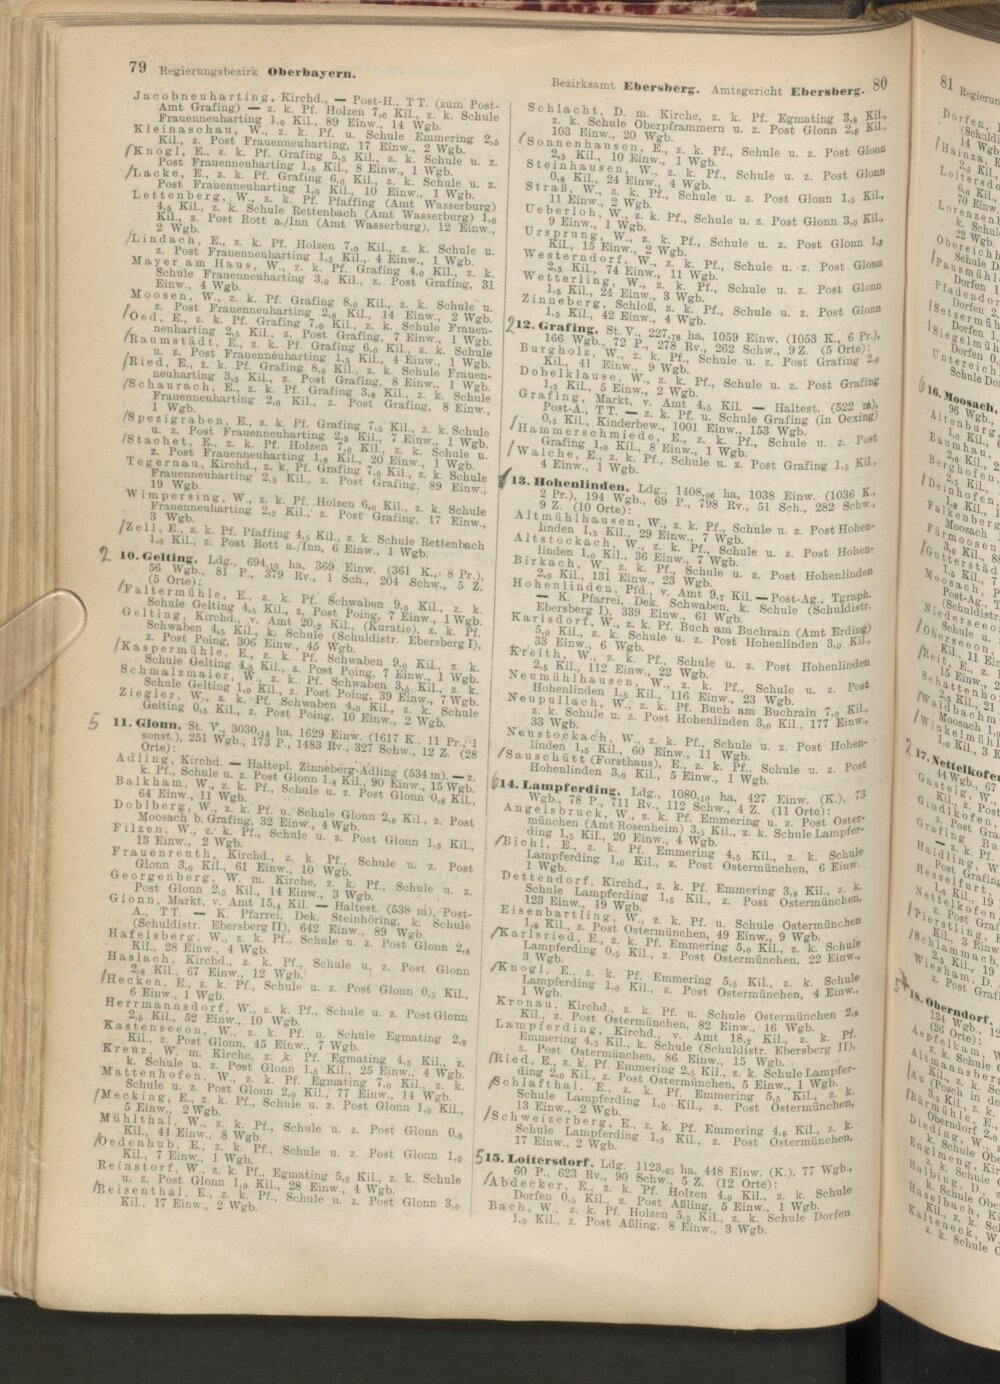 79 Regierungsbezirk Oberbayern.
Jacobneuharting, Kirchd., — Post-H., TT. (zum Post-
Amt Grafing) — z. k. Pf. Holzen 7,0 Kil., z. k. Schule
Frauenneuharting 1,0 Kil., 89 Einw., 14 Wgb.
Kleinaschau, W., z. k. Pf. u. Schule Emmering 2,5
Kil., z. Post Frauenneuharting, 17 Einw., 2 Wgb.
/Knogl, E., z. k. Pf. Grafing 5,5 Kil., z. k. Schule u. z.
Post Frauenneuharting 1,5 Kil., 8 Einw., 1 Wgb.
/Lacke, E., z. k. Pf. Grafing 6,0 Kil., z. k. Schule u. z.
Post Frauenneuharting 1,0 Kil., 10 Einw., 1 Wgb.
Lettenberg, W., z. k. Pf. Pfaffing (Amt Wasserburg)
4,5 Kil., z. k. Schule Rettenbach (Amt Wasserburg) 1,0
Kil., z. Post Rott a./Inn (Amt Wasserburg), 12 Einw.,
2 Wgb.
/Lindach, E., z. k. Pf. Holzen 7,0 Kil., z. k. Schule u.
z. Post Frauenneuharting 1,5 Kil., 4 Einw., 1 Wgb.
Mayer am Haus, W., z. k. Pf. Grafing 4,0 Kil., z. k.
Schule Frauenneuharting 3,0 Kil., z. Post Grafing, 31
Einw., 4 Wgb.
Moosen, W., z. k. Pf. Grafing 8,0 Kil., z. k. Schule u.
z. Post Frauenneuharting 2,8 Kil., 14 Einw., 2 Wgb.
/Oed, E., z. k. Pf. Grafing 7,0 Kil., z. k. Schule Frauen-
neuharting 2,5 Kil., z. Post Grafing, 7 Einw., 1 Wgb.
/Raumstädt, E., z. k. Pf. Grafing 6,0 Kil., z. k. Schule
u. z. Post Frauenneuharting 1,5 Kil., 4 Einw., 1 Wgb.
/Ried, E., z. k. Pf. Grafing 8,0 Kil., z. k. Schule Frauen-
neuharting 3,3 Kil., z. Post Grafing, 8 Einw., 1 Wgb.
/Schaurach, E., z. k. Pf. Grafing 3,8 Kil., z. k. Schule
Frauenneuharting 2,0 Kil., z. Post Grafing, 8 Einw.,
1 Wgb.
/Spezigraben, E., z. k. Pf. Grafing 7,5 Kil., z. k. Schule
u. z. Post Frauenneuharting 2,5 Kil., 7 Einw., 1 Wgb.
/Stachet, E., z. k. Pf. Holzen 7,0 Kil., z. k. Schule u.
z. Post Frauenneuharting 1,8 Kil., 20 Einw., 1 Wgb.
Tegernau, Kirchd., z. k. Pf. Grafing 7,0 Kil., z. k. Schule
Frauenneuharting 2,3 Kil., z. Post Grafing, 89 Einw.,
19 Wgb.
Wimpersing, W., z. k. Pf. Holzen 6,0 Kil., z. k. Schule
Frauenneuharting 2,3 Kil., z. Post Grafing, 17 Einw.,
3 Wgb.
/Zell, E., z. k. Pf. Pfaffing 4,5 Kil., z. k. Schule Rettenbach
1,0 Kil., z. Post Rott a./Inn, 6 Einw., 1 Wgb.
2 10. Gelting, Ldg., 694,10 ha, 369 Einw. (361 K., 8 Pr.),
56 Wgb., 81 P., 379 Rv., 1 Sch., 204 Schw., 5 Z.
(5 Orte):
/Faltermühle, E., z. k. Pf. Schwaben 9,0 Kil., z. k.
Schule Gelting 4,5 Kil., z. Post Poing, 7 Einw., 1 Wgb.
Gelting, Kirchd., v. Amt 20,2 Kil., (Kuratie), z. k. Pf.
Schwaben 4,5 Kil., k. Schule (Schuldistr. Ebersberg I),
z. Post Poing, 306 Einw., 45 Wgb.
/Kaspermühle, E., z. k. Pf. Schwaben 9,0 Kil., z. k.
Schule Gelting 4,5 Kil., z. Post Poing, 7 Einw., 1 Wgb.
Schmalzmaier, W., z. k. Pf. Schwaben 3,5 Kil., z. k.
Schule Gelting 1,0 Kil., z. Post Poing, 39 Einw., 7 Wgb.
Ziegler, W., z. k. Pf. Schwaben 4,0 Kil., z. k. Schule
Gelting 0,5 Kil., z. Post Poing, 10 Einw., 2 Wgb.
5 11. Glonn, St. V., 3030,14 ha, 1629 Einw. (1617 K., 11 Pr., 1
sonst.), 251 Wgb., 173 P., 1483 Rv., 327 Schw., 12 Z. (28
Orte):
Adling, Kirchd. — Haltepl. Zinneberg-Adling (534 m). — z.
k. Pf., Schule u. z. Post Glonn 1,8 Kil., 90 Einw., 15 Wgb.
Balkham, W., z. k. Pf., Schule u. z. Post Glonn 0,8 Kil.,
64 Einw., 11 Wgb.
Doblberg, W., z. k. Pf. u. Schule Glonn 2,8 Kil., z. Post
Moosach b. Grafing, 32 Einw., 4 Wgb.
Filzen, W., z. k. Pf., Schule u. z. Post Glonn 1,3 Kil.,
13 Einw., 2 Wgb.
Frauenreuth, Kirchd., z. k. Pf., Schule u. z. Post
Glonn 3,0 Kil., 61 Einw., 10 Wgb.
Georgenberg, W. m. Kirche, z. k. Pf., Schule u. z.
Post Glonn 2,5 Kil., 14 Einw., 3 Wgb.
Glonn, Markt, v. Amt 15,4 Kil. — Haltest. (538 m), Post-
A., TT. — K. Pfarrei, Dek. Steinhöring, k. Schule
(Schuldistr. Ebersberg II), 642 Einw., 89 Wgb.
Hafelsberg, W., z. k. Pf., Schule u. z. Post Glonn 2,8
Kil., 28 Einw., 4 Wgb.
Haslach, Kirchd., z. k. Pf., Schule u. z. Post Glonn
2,8 Kil., 67 Einw., 12 Wgb.
/Hecken, E., z. k. Pf., Schule u. z. Post Glonn 0,5 Kil.,
6 Einw., 1 Wgb.
Herrmannsdorf, W., z. k. Pf., Schule u. z. Post Glonn
2,5 Kil., 52 Einw., 10 Wgb.
Kastenseeon, W., z. k. Pf. u. Schule Egmating 2,8
Kil., z. Post Glonn, 45 Einw., 7 Wgb.
Kreuz, W. m. Kirche, z. k. Pf. Egmating 4,5 Kil., z.
k. Schule u. z. Post Glonn 1,5 Kil., 25 Einw., 4 Wgb.
Mattenhofen, W., z. k. Pf. Egmating 7,0 Kil., z. k.
Schule u. z. Post Glonn 2,0 Kil., 77 Einw., 14 Wgb.
/Mecking, E., z. k. Pf., Schule u. z. Post Glonn 1,0 Kil.,
5 Einw., 2 Wgb.
Mühlthal, W., z. k. Pf., Schule u. z. Post Glonn 0,8
Kil., 44 Einw., 8 Wgb.
/Oedenhub, E., z. k. Pf., Schule u. z. Post Glonn 1,0
Kil., 7 Einw., 1 Wgb.
Reinstorf, W., z. k. Pf., Egmating 5,0 Kil., z. k. Schule
u. z. Post Glonn 1,0 Kil., 28 Einw., 4 Wgb.
/Reisenthal, E., z. k. Pf., Schule u. z. Post Glonn 3,0
Kil., 17 Einw., 2 Wgb.
Bezirksamt Ebersberg. Amtsgericht Ebersberg. 80
Schlacht, D. m. Kirche, z. k. Pf. Egmating 3,8 Kil.,
z. k. Schule Oberpframmern u. z. Post Glonn 2,8 Kil.,
103 Einw., 20 Wgb.
/Sonnenhausen, E., z. k. Pf., Schule u. z. Post Glonn
2,3 Kil., 10 Einw., 1 Wgb.
Steinhausen, W., z. k. Pf., Schule u. z. Post Glonn
0,8 Kil., 24 Einw., 4 Wgb.
Straß, W., z. k. Pf., Schule u. z. Post Glonn 1,5 Kil.,
11 Einw., 2 Wgb.
Ueberloh, W., z. k. Pf., Schule u. z. Post Glonn 3,0 Kil.,
9 Einw., 1 Wgb.
Ursprung, W., z. k. Pf., Schule u. z. Post Glonn 1,3
Kil., 15 Einw., 2 Wgb.
Westerndorf, W., z. k. Pf., Schule u. z. Post Glonn
2,3 Kil., 74 Einw., 11 Wgb.
Wetterling, W., z. k. Pf., Schule u. z. Post Glonn
1,5 Kil., 24 Einw., 3 Wgb.
Zinneberg, Schloß, z. k. Pf., Schule u. z. Post Glonn
1,5 Kil., 42 Einw., 4 Wgb.
2 12. Grafing, St. V., 227,78 ha, 1059 Einw. (1053 K., 6 Pr.),
166 Wgb., 72 P., 278 Rv., 262 Schw., 9 Z. (5 Orte):
Burgholz, W., z. k. Pf., Schule u. z. Post Grafing 2,0
Kil., 41 Einw., 9 Wgb.
Dobelklause, W., z. k. Pf., Schule u. z. Post Grafing
1,3 Kil., 5 Einw., 2 Wgb.
Grafing, Markt, v. Amt 4,5 Kil. — Haltest. (522 m),
Post-A., TT. — z. k. Pf. u. Schule Grafing (in Oexing)
0,5 Kil., Kinderbew., 1001 Einw., 153 Wgb.
/Hammerschmiede, E., z. k. Pf., Schule u. z. Post
Grafing 1,0 Kil., 8 Einw., 1 Wgb.
/Walche, E., z. k. Pf., Schule u. z. Post Grafing 1,5 Kil.,
4 Einw., 1 Wgb.
13. Hohenlinden, Ldg., 1408,06 ha, 1038 Einw. (1036 K.,
2 Pr.), 194 Wgb., 69 P., 798 Rv., 51 Sch., 282 Schw.,
9 Z. (10 Orte):
Altmühlhausen, W., z. k. Pf., Schule u. z. Post Hohen-
linden 1,3 Kil., 29 Einw., 7 Wgb.
Altstockach, W., z. k. Pf., Schule u. z. Post Hohen-
linden 1,0 Kil., 36 Einw., 7 Wgb.
Birkach, W., z. k. Pf., Schule u. z. Post Hohenlinden
2,0 Kil., 131 Einw., 23 Wgb.
Hohenlinden, Pfd., v. Amt 9,7 Kil. — Post-Ag., Tgraph.
— K. Pfarrei, Dek. Schwaben, k. Schule (Schuldistr.
Ebersberg I), 339 Einw., 61 Wgb.
Karlsdorf, W., z. k. Pf. Buch am Buchrain (Amt Erding)
5,0 Kil., z. k. Schule u. z. Post Hohenlinden 3,0 Kil.,
33 Einw., 6 Wgb.
Kreith, W., z. k. Pf., Schule u. z. Post Hohenlinden
2,5 Kil., 112 Einw., 22 Wgb.
Neumühlhausen, W., z. k. Pf., Schule u. z. Post
Hohenlinden 1,5 Kil., 116 Einw., 23 Wgb.
Neupullach, W., z. k. Pf. Buch am Buchrain 7,0 Kil.,
z. k. Schule u. z. Post Hohenlinden 3,0 Kil., 177 Einw.,
33 Wgb.
Neustockach, W., z. k. Pf., Schule u. z. Post Hohen-
linden 1,5 Kil., 60 Einw., 11 Wgb.
/Sauschütt (Forsthaus), E., z. k. Pf., Schule u. z. Post
Hohenlinden 3,0 Kil., 5 Einw., 1 Wgb.
6 14. Lampferding, Ldg., 1080,10 ha, 427 Einw. (K.), 73
Wgb., 78 P., 711 Rv., 112 Schw., 4 Z. (11 Orte):
Angelsbruck, W., z. k. Pf. Emmering u. z. Post Oster-
münchen (Amt Rosenheim) 3,5 Kil., z. k. Schule Lampfer-
ding 1,5 Kil., 20 Einw., 4 Wgb.
/Bichl, E., z. k. Pf. Emmering 4,5 Kil., z. k. Schule
Lampferding 1,0 Kil., z. Post Ostermünchen, 6 Einw.
1 Wgb.
Dettendorf, Kirchd., z. k. Pf. Emmering 3,8 Kil., z. k.
Schule Lampferding 1,5 Kil., z. Post Ostermünchen,
123 Einw., 19 Wgb.
Eisenbartling, W., z. k. Pf. u. Schule Ostermünchen
1,8 Kil., z. Post Ostermünchen, 49 Einw., 9 Wgb.
/Karlsried, E., z. k. Pf. Emmering 5,0 Kil., z. k. Schule
Lampferding 0,5 Kil., z. Post Ostermünchen, 22 Einw.,
3 Wgb.
/Knogl, E., z. k. Pf. Emmering 5,5 Kil., z. k. Schule
Lampferding 1,0 Kil., z. Post Ostermünchen, 4 Einw.,
1 Wgb.
Kronau, Kirchd., z. k. Pf. u. Schule Ostermünchen 2,8
Kil., z. Post Ostermünchen, 82 Einw., 16 Wgb.
Lampferding, Kirchd., v. Amt 18,2 Kil., z. k. Pf.
Emmering 4,5 Kil., k. Schule (Schuldistr. Ebersberg II),
z. Post Ostermünchen, 86 Einw., 15 Wgb.
/Ried, E., z. k. Pf. Emmering 2,5 Kil., z. k. Schule Lampfer-
ding 2,0 Kil., z. Post Ostermünchen, 5 Einw., 1 Wgb.
/Schlafthal, E., z. k. Pf. Emmering 5,5 Kil., z. k.
Schule Lampferding 1,0 Kil., z. Post Ostermünchen,
13 Einw., 2 Wgb.
/Schweizerberg, E., z. k. Pf. Emmering 4,8 Kil., z. k.
Schule Lampferding 1,5 Kil., z. Post Ostermünchen,
17 Einw., 2 Wgb.
5 15. Loitersdorf, Ldg. 1123,63 ha, 448 Einw. (K.). 77 Wgb.,
60 P., 623 Rv., 90 Schw., 5 Z. (12 Orte):
/Abdecker, E., z. k. Pf. Holzen 4,0 Kil., z. k. Schule
Dorfen 0,5 Kil., z. Post Aßling, 5 Einw., 1 Wgb.
Bach, W., z. k. Pf. Holzen 5,5 Kil., z. k. Schule Dorfen
1,0 Kil., z. Post Aßling, 8 Einw., 3 Wgb.
81 Regierun
Dorfen,
(Schuld
14 Wgb
/Hainza, E
2,5 Kil.,
Loitersdo
6,0 Kil.,
70 Einw.
Lorenzen
k. Schul
22 Wgb.
Obereichh
Schule D
/Pausmühl
Dorfen 1
Pfadendor
Dorfen 2,
/Setzermüh
Dorfen 1,
/Siegelmüh
Dorfen 0,
Untereich
Schule Do
6 16. Moosach,
96 Wgb.,
Altenburg,
1,0 Kil.,
Baumhau,
2,0 Kil., 2
Berghofen,
2,5 Kil.,
/Deinhofen
Falkenberg
Moosach
Fürmoosen
3,0 Kil., 8
/Gutterstäd
1,5 Kil., 7
Moosach, P
Post-Ag., T
(Schuldistr
Niederseeo
Schule u.
/Oberseeon,
Kil., 11 Ein
/Reit, E., z.
15 Einw., 2
Schattenho
2,5 Kil., 21
/Waldbachm
Moosach 1,0
/Winkelmühl
1,0 Kil., 3 E
2 17. Nettelkofen
44 Wgb., 67
Gasteig, W.,
Kil., z. Post
Gindlkofen,
z. Post Gra
Grafing Ba
— z. k. Pf.,
Haidling, W
Post Grafing
Hesselfurt,
1,0 Kil., 19
Nettelkofen,
z. Post Graf
/Pierstling, E
Kil., 3 Einw
/Schlammach,
2,5 Kil., 19
Wiesham, D.
z. Post Grafi
5 18. Oberndorf,
134 Wgb., 12
(26 Orte):
Aepfelkam, W
z. k. Schule
Altmannsberg
Kil., z. k. Sc
/Au (Posch in de
3,5 Kil., z. k.
/Bärmühle, E.,
Oberndorf 2,0
Dieding, W., z
k. Schule Obe
Englmeng, Kir
z. k. Schule
Halbing, D., z
k. Schule Obe
Haselbach, Ki
Kil., z. k. Sch
Kalteneck, W.
z. k. Schule O